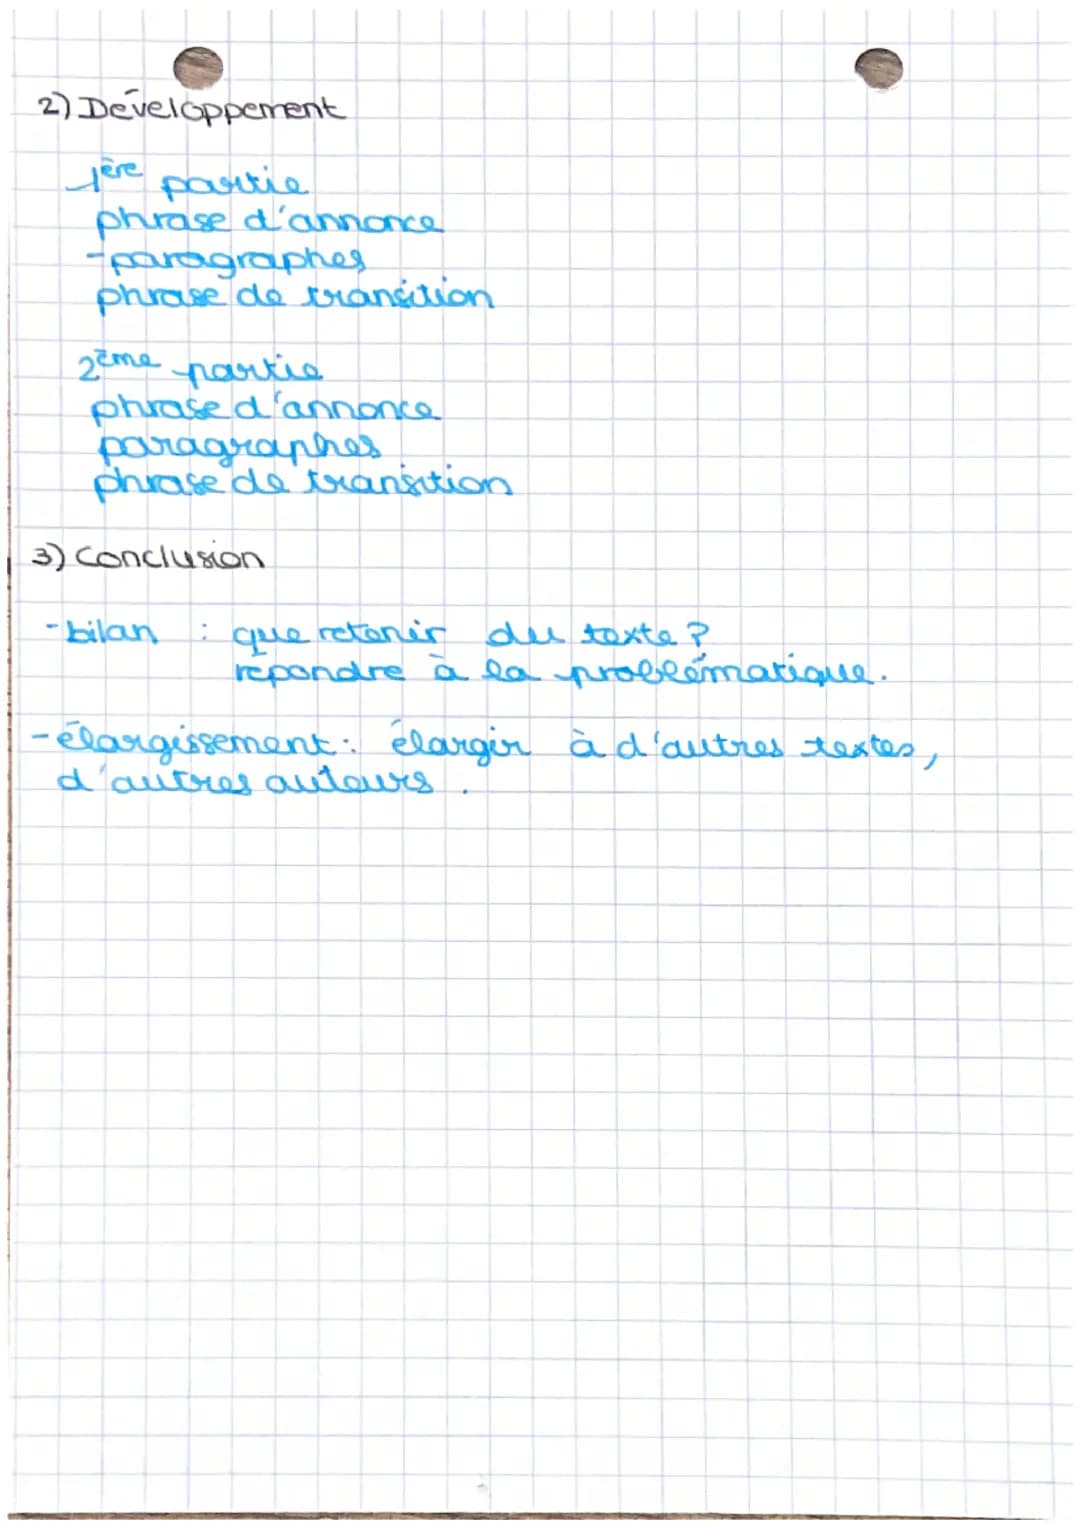 2) Développement
1ère partie
phrase d'annonce
-paragraphes
phrase de transition
2ème partie
phrase d'annonce
paragraphes
phrase de transition
3) Conclusion
-bilan : que retenir du texte ?
répondre à la problématique.
-élargissement : élargir à d'autres textes,
d'autres auteurs.